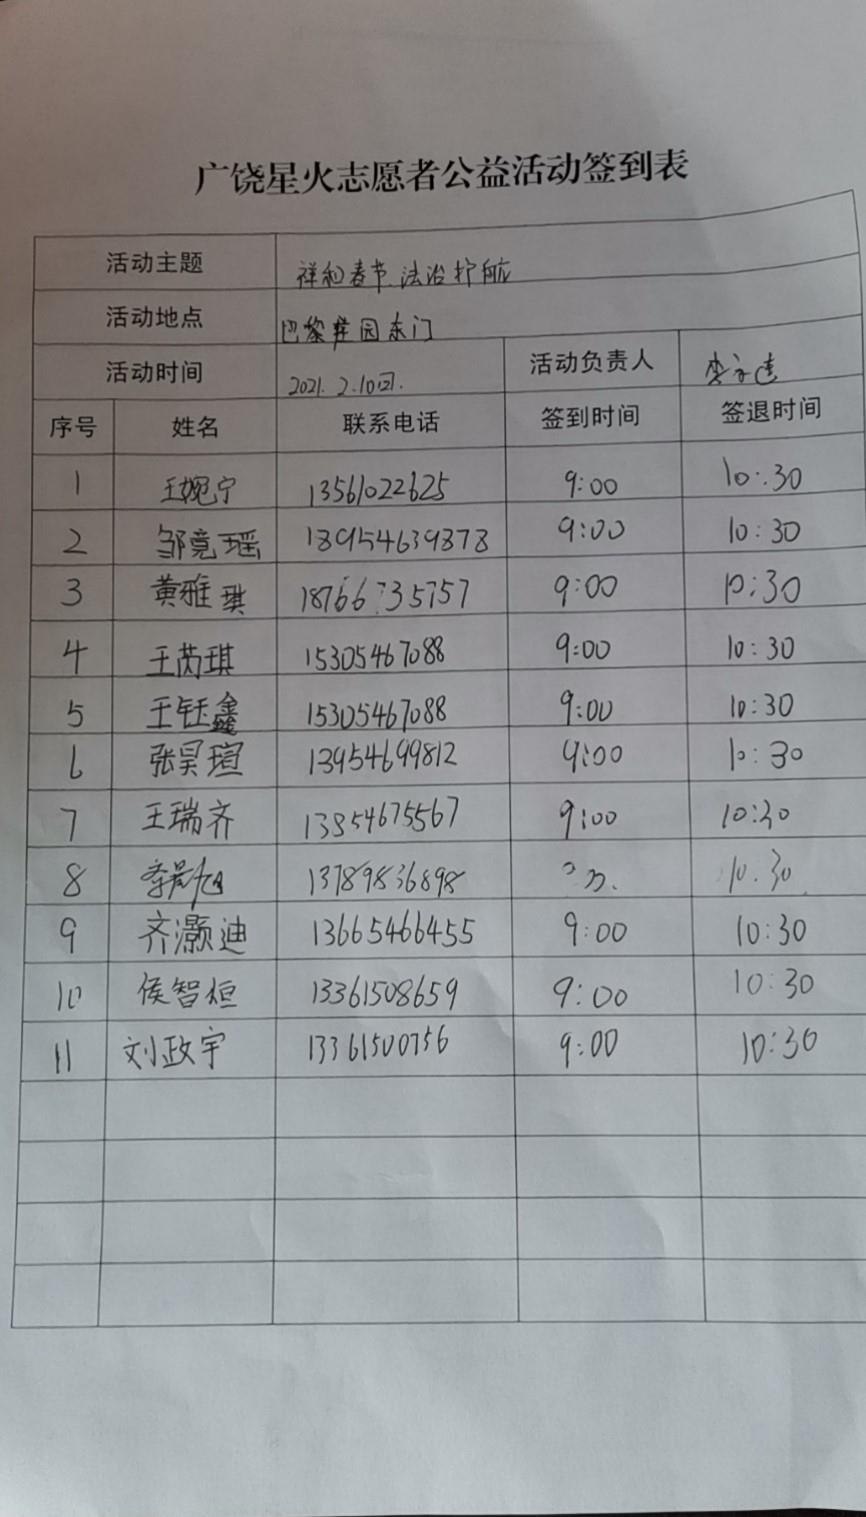 广饶星火志愿者公益活动签到表
活动主题 祥和春节.法治护航
活动地点 巴黎庄园东门
活动时间 2021.2.10日. 活动负责人
序号 姓名 联系电话 签到时间 签退时间
1 王婉宁 13561022625 9:00 10:30
2 邹竟瑶 13954639373 9:00 10:30
3 黄雅琪 18766735757 9:00 10:30
4 王芮琪 15305467088 9:00 10:30
5 王钰鑫 15305467088 9:00 10:30
6 张昊瑄 13954699812 9:00 10:30
7 王瑞齐 13854675567 9:00 10:30
8 13789836898 10.30
9 齐灏迪 13665466455 9:00 10:30
10 侯智桓 13361508659 9:00 10:30
11 刘政宇 13361500756 9:00 10:30